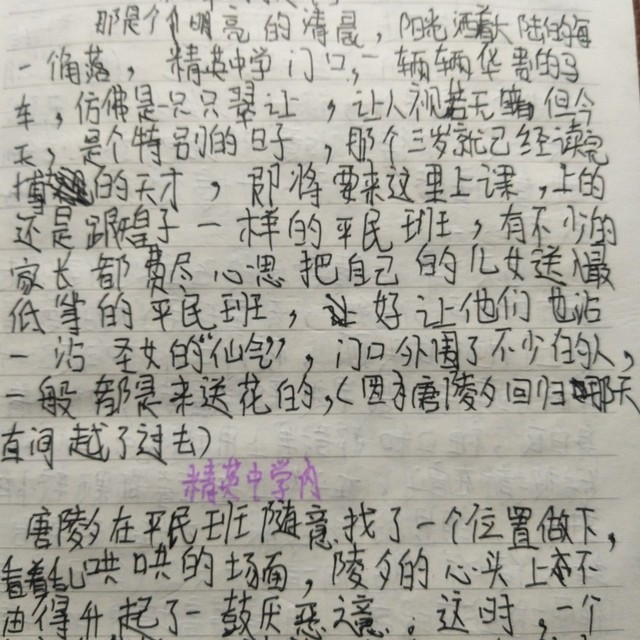 那是个明亮的清晨，阳光洒着大陆的每
一角落，精英中学门口，一辆辆华贵的马
车，仿佛是一只只翠让，让人视若无睹但今
天，是个特别的日子，那个三岁就已经读完
博的天才，即将要来这里上课，上的
还是跟皇子一样的平民班，有不少的
家长都费尽心思把自己的儿女送入最
低等的平民班，好让他们也沾
一沾圣女的“仙气”，门口外围了不少的人，
一般都是来送花的，（因为唐陵夕回归那天
直间越了过去）
精英中学内
唐陵夕在平民班随意找了一个位置做下，
看着乱哄哄的场面，陵夕的心头上不
由得升起了一鼓厌恶之意，这时，一个